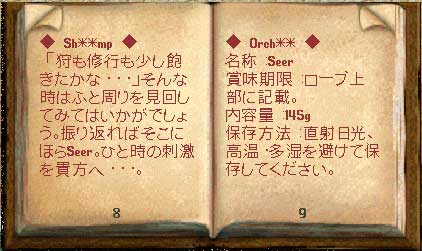 ◆ Sh**mp ◆
「狩も修行も少し飽
きたかな・・・」そんな
時はふと周りを見回し
てみてはいかがでしょ
う。振り返ればそこに
ほらSeer。ひと時の刺激
を貴方へ・・・。
8
◆ Oreh** ◆
名称:Seer
賞味期限:ローブ上
部に記載。
内容量:145g
保存方法:直射日光、
高温・多湿を避けて保
存してください。
9